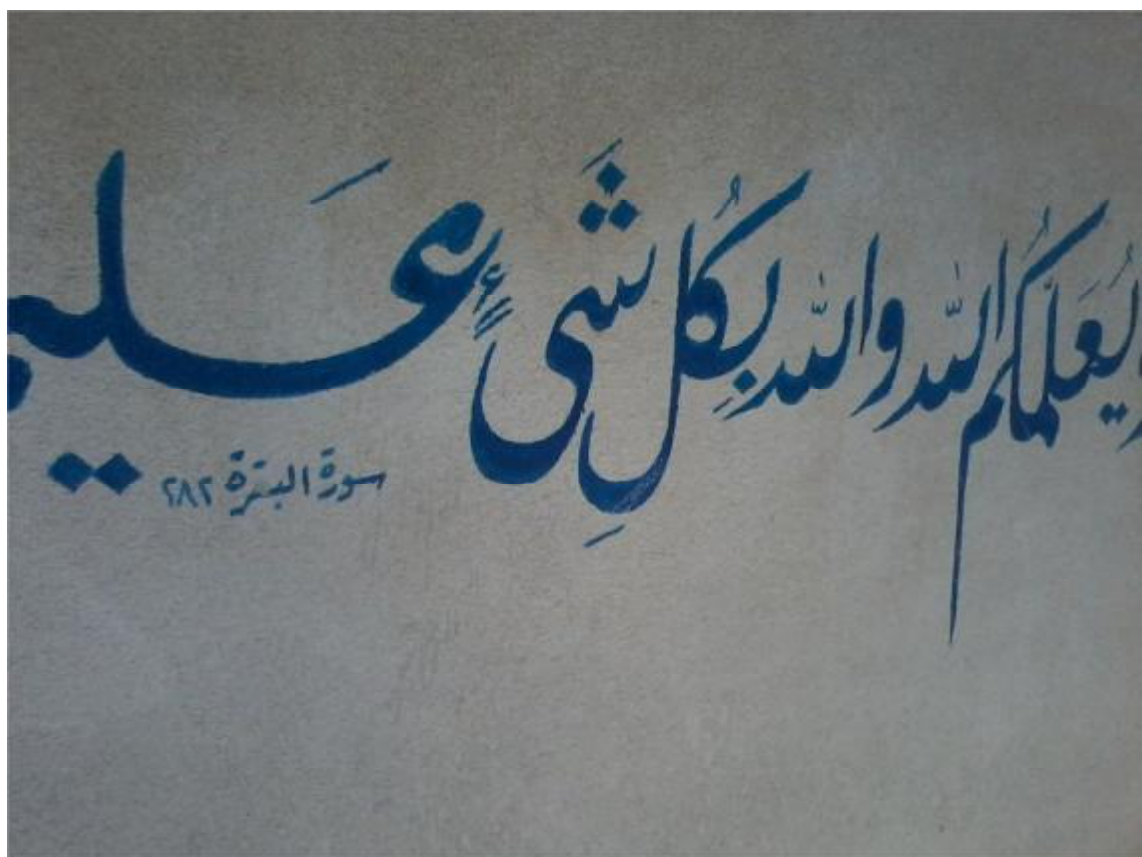 ويُعَلِّمُكُمُ اللّٰه واللّٰه بِكُلِّ شَیءٍ عَليم
سورة البقرة ٢٨٢